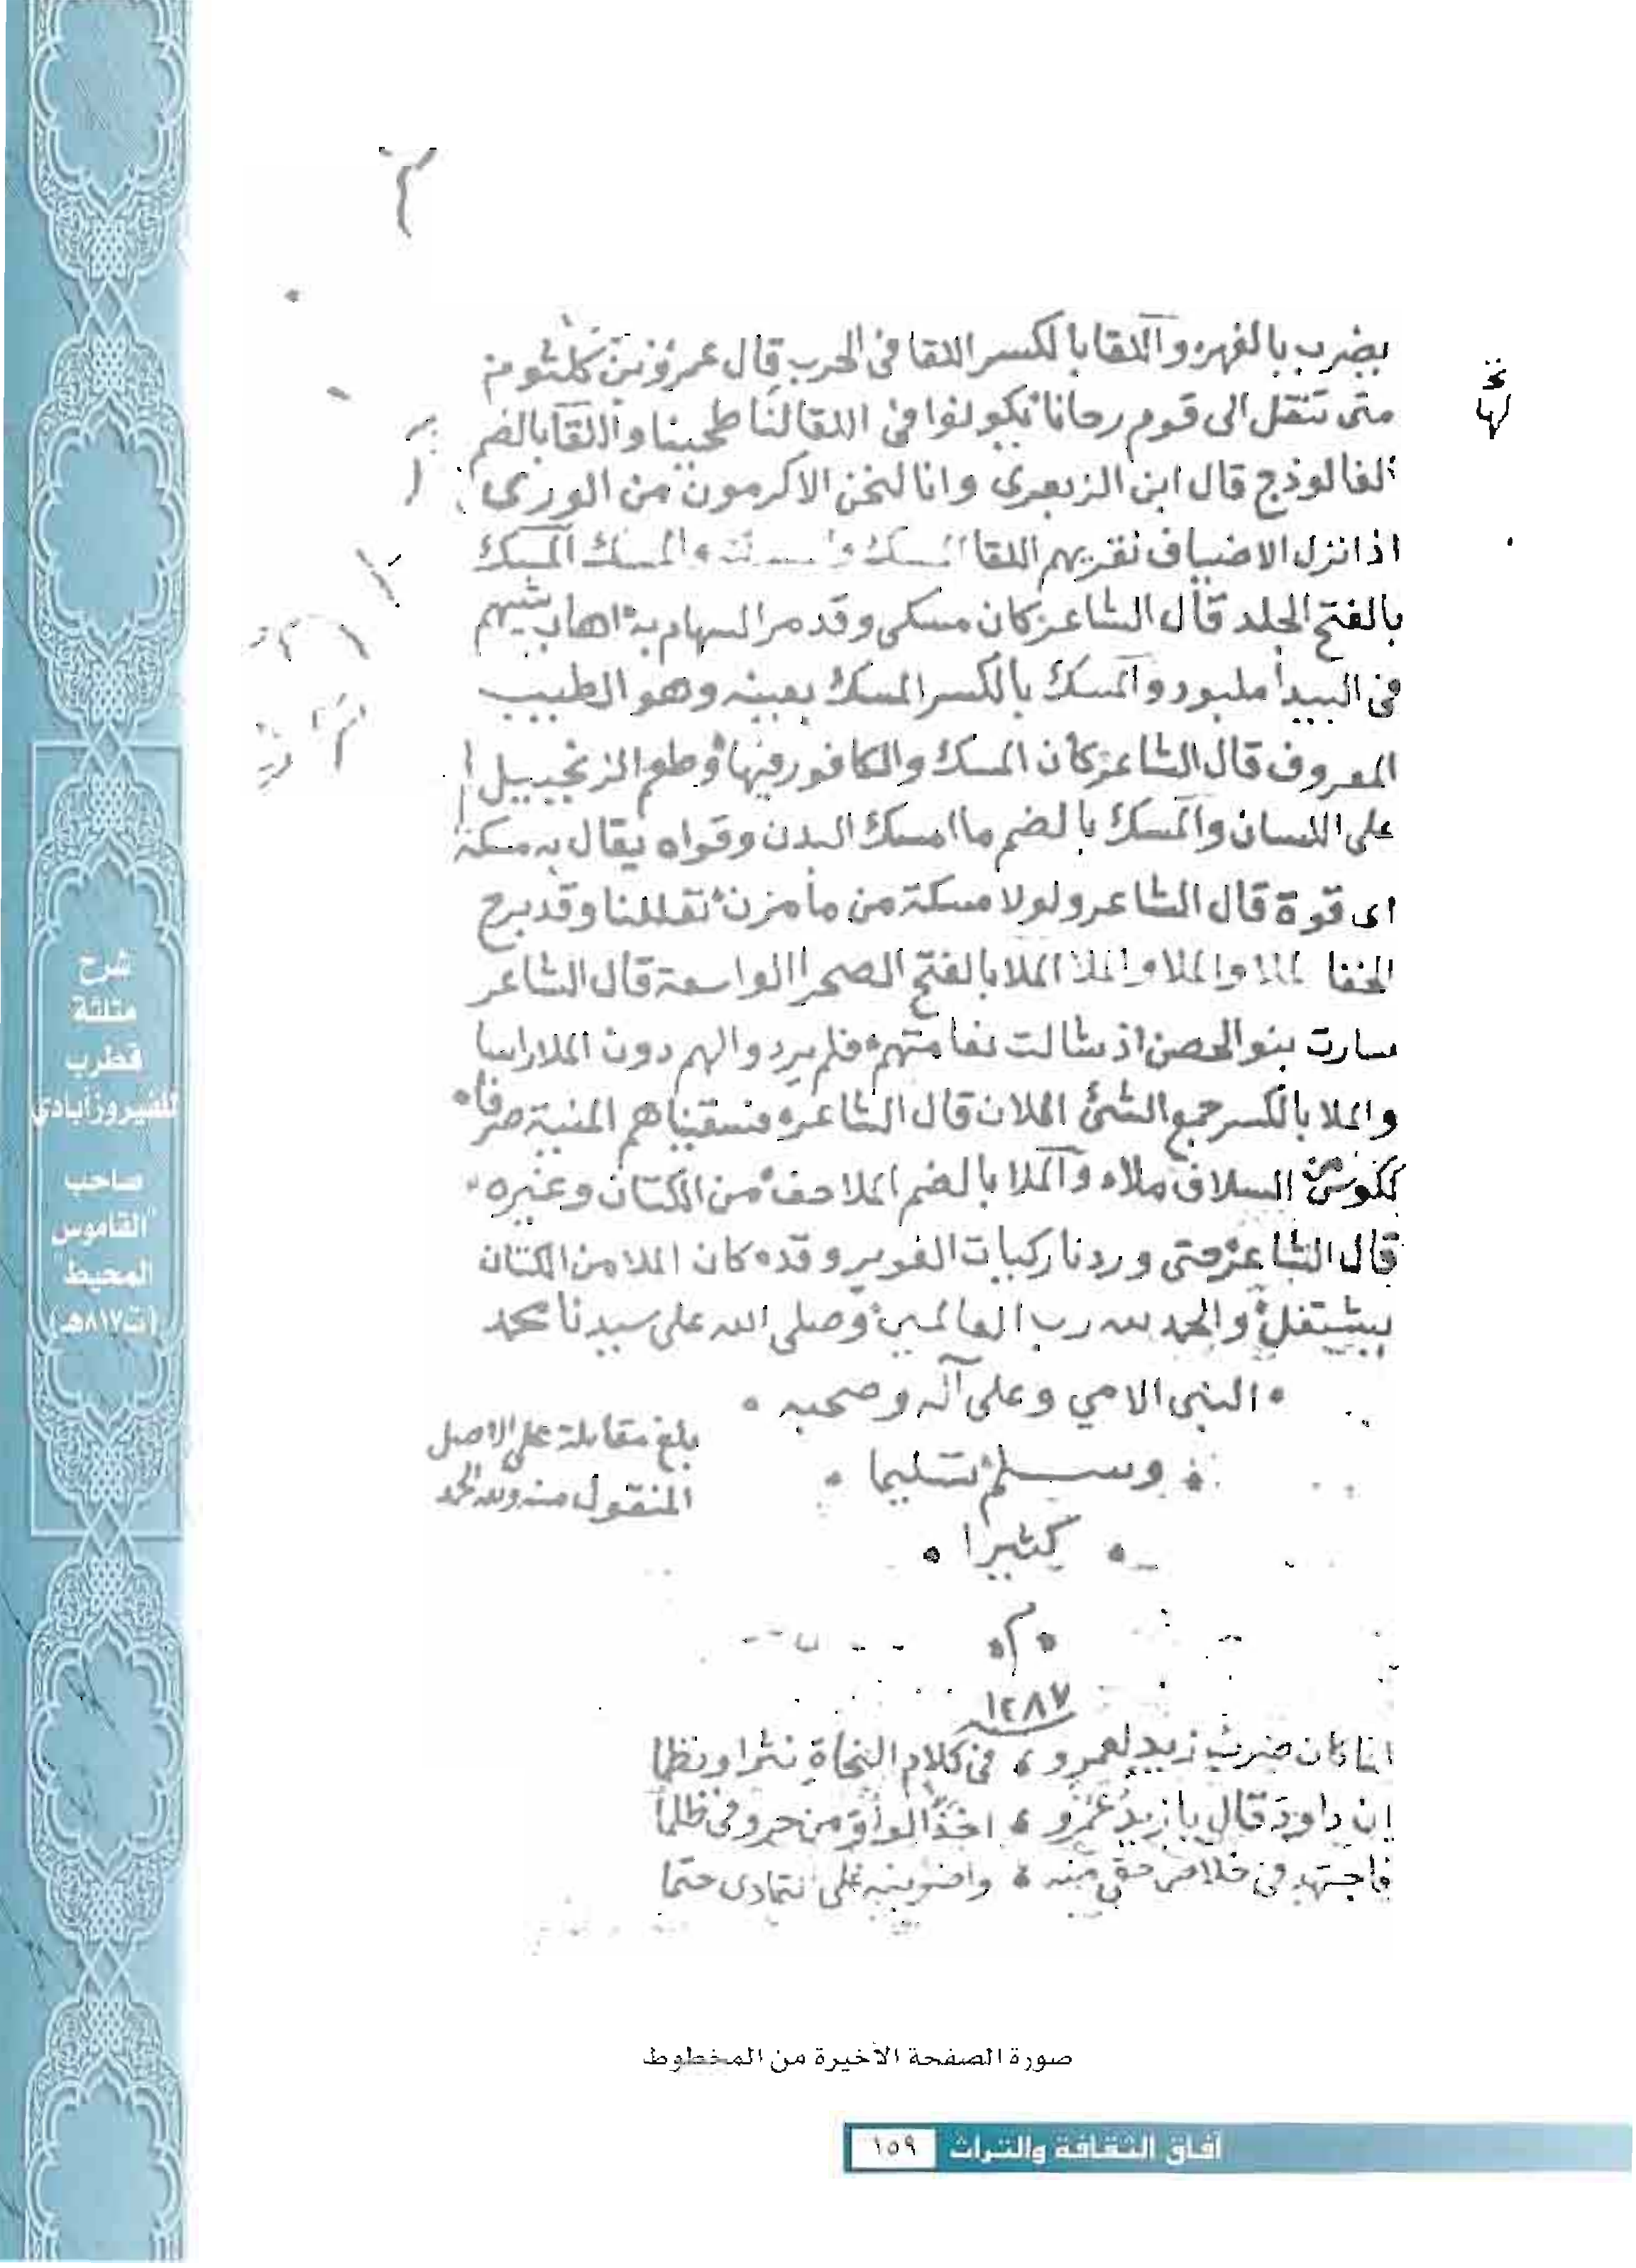 يضرب بالفهر واللقا بالكسر اللقا فى الحرب قال عمرو بن كلثوم
متى تنقل الى قوم رحانا يكونوا فى اللقا لنا طحينا واللقا بالضم
الفالوذج قال ابن الزبعرى وانا لنحن الاكرمون من الورى
اذا نزل الاضياف نقريهم اللقا المسك والمسك المسك
بالفتح الجلد قال الشاعر كان مسكى وقد مر السهام به اهاب
فى البيدا ملبود والمسك بالكسر المسك بعينه وهو الطيب
المعروف قال الشاعر كان المسك والكافور فيها وطعم الزنجبيل
على اللسان والمسك بالضم ما امسك البدن وقواه يقال به مسكة
اى قوة قال الشاعر ولولا مسكة من ما مزن تقللنا وقد برح
الخفا الملا والملا والملا الملا بالفتح الصحرا الواسعة قال الشاعر
سارت بنو الحصن اذ شالت نعامتهم فلم يردوا لهم دون الملا راسا
والملا بالكسر جمع الشئ الملان قال الشاعر فسقيناهم المنية صرفا
ككوس من السلاف ملاء والملا بالضم الملاحف من الكتان وغيره
قال الشاعر حتى وردنا ركيات الغوير وقد كان الملا من الكتان
يشتعل والحمد لله رب العالمين وصلى الله على سيدنا محمد
النبى الامي وعلى آله وصحبه
بلغ مقابلة على الاصل
المنقول منه ولله الحمد
وسلم تسليما
كثيرا
م
١٢٨٧
انا كان ضرب زيد لعمرو فى كلام النحاة نثرا ونظما
ان داود قال يا زيد عمرو اخذ الواو من حروفى ظلما
فاجتهد فى خلاص حقى منه واضربنه على التمادى حتما
شرح
مثلثة
قطرب
للفيروزآبادي
صاحب
"القاموس
المحيط"
(ت٨١٧هـ)
صورة الصفحة الأخيرة من المخطوط
آفاق الثقافة والتراث ١٥٩